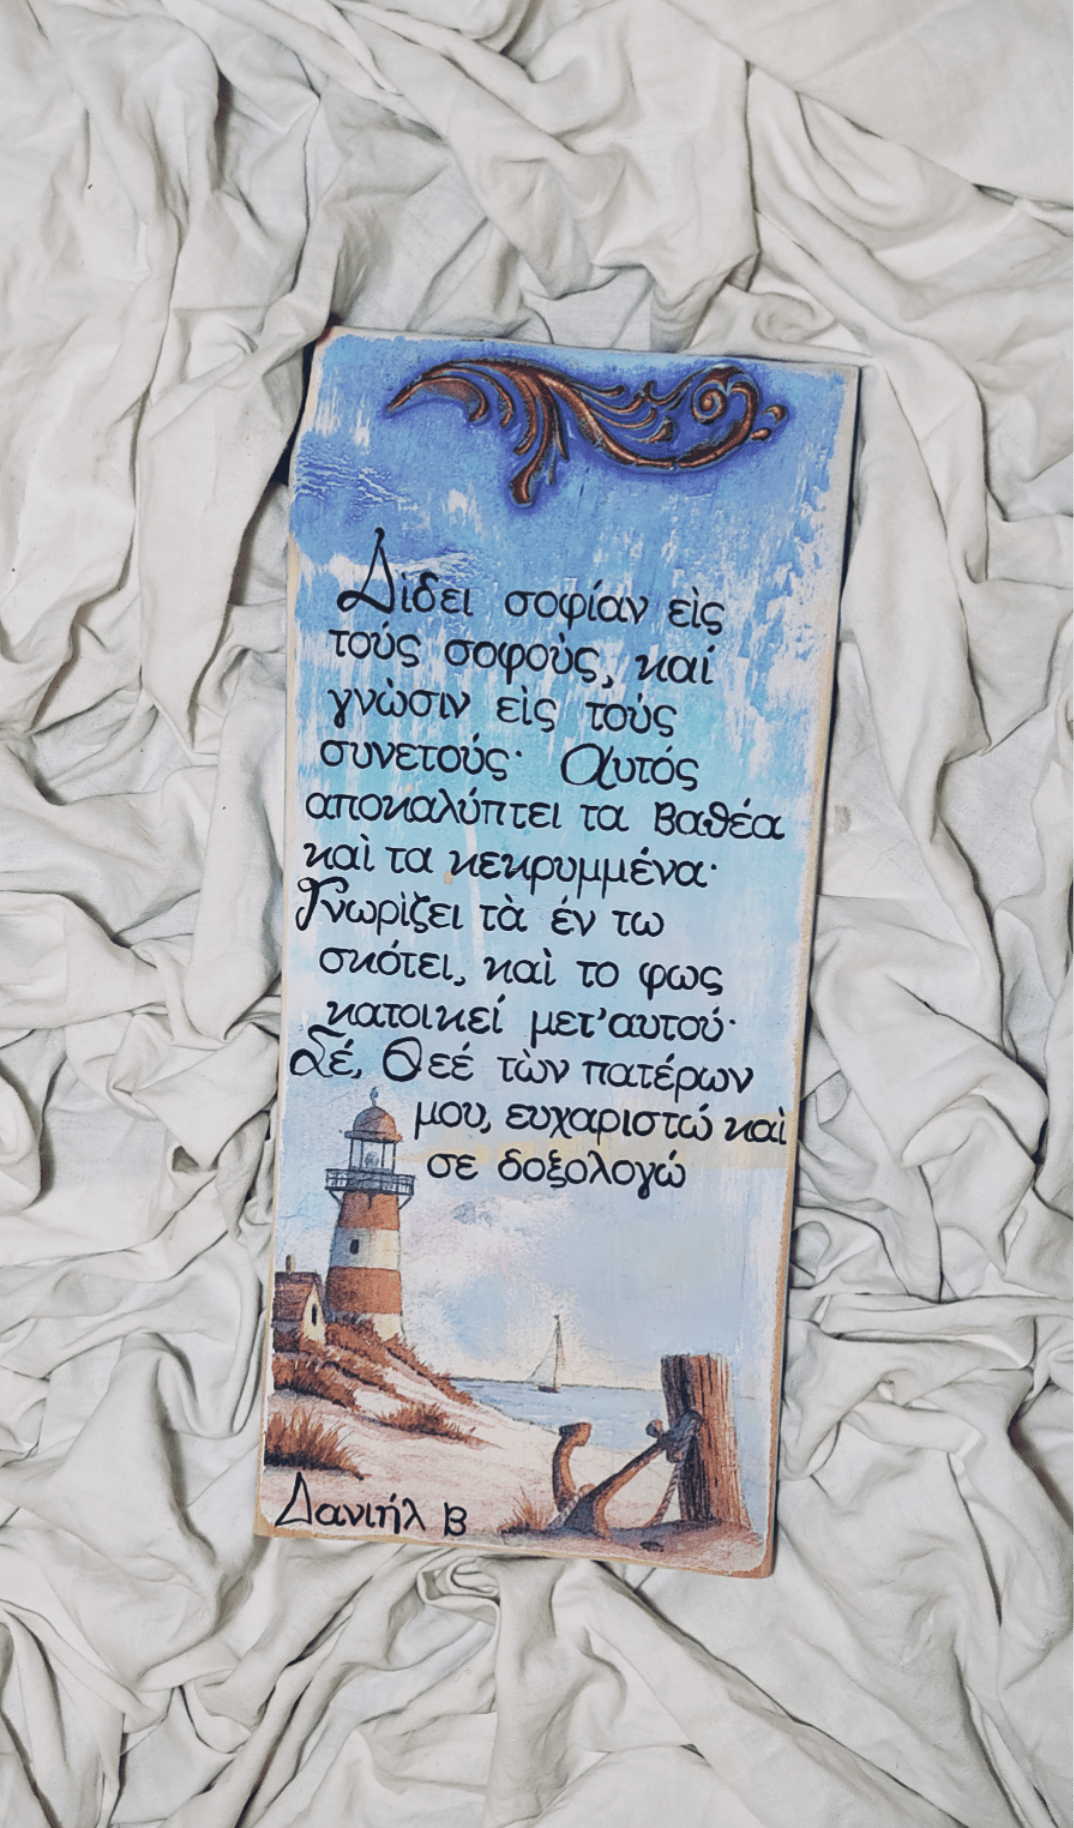 Δίδει σοφίαν εὶς
τούς σοφοὺς, καί
γνὼσιν εὶς τούς
συνετούς· Αυτός
αποκαλύπτει τα βαθέα
καὶ τα κεκρυμμένα·
Γνωρὶζει τὰ έν τω
σκότει, καὶ το φως
κατοικεί μετ'αυτού·
Σέ, Θεέ τὼν πατέρων
μου, ευχαριστώ καὶ
σε δοξολογώ
Δανιήλ Β